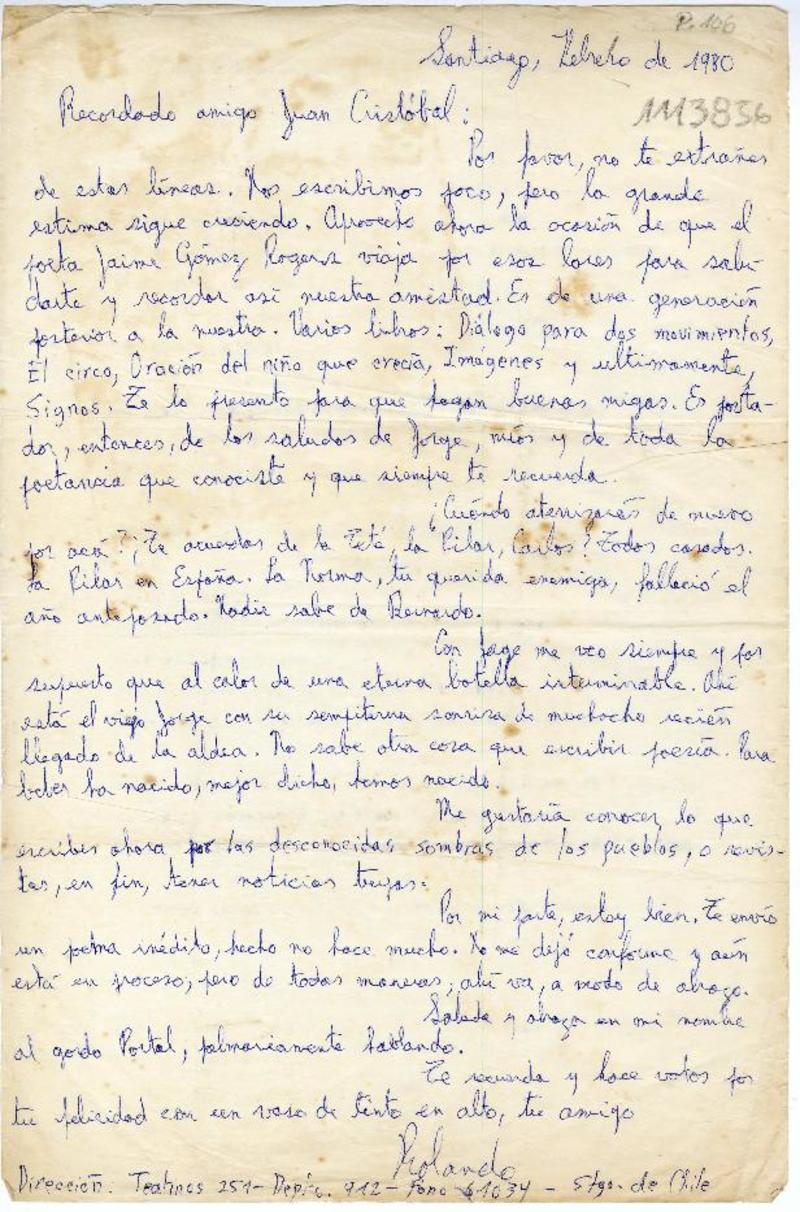 P. 106
Santiago, Febrero de 1980
1113836
Recordado amigo Juan Cristóbal:
Por favor, no te extrañes
de estas líneas. Nos escribimos poco, pero la grande
estima sigue creciendo. Aprovecho ahora la ocasión de que el
poeta Jaime Gómez Rogers viaja por esos lares para salu-
darte y recordar así nuestra amistad. Es de una generación
posterior a la nuestra. Varios libros: Diálogo para dos movimientos,
El circo, Oración del niño que crecía, Imágenes y ultimamente,
Signos. Te lo presento para que hagan buenas migas. Es porta-
dor, entonces, de los saludos de Jorge, míos y de toda la
poetancia que conociste y que siempre te recuerda.
¿Cuándo aterrizarás de nuevo
por acá? ¿Te acuerdas de la Teté, la Pilar, Carlos? Todos casados.
La Pilar en España. La Norma, tu querida enemiga, falleció el
año antepasado. Nadie sabe de Bernardo.
Con Jorge me veo siempre y por
supuesto que al calor de una eterna botella interminable. Ahí
está el viejo Jorge con su sempiterna sonrisa de muchacho recién
llegado de la aldea. No sabe otra cosa que escribir poesía. Para
beber ha nacido, mejor dicho, hemos nacido.
Me gustaría conocer lo que
escribes ahora por las desconocidas sombras de los pueblos, o revis-
tas, en fin, tener noticias tuyas.
Por mi parte, estoy bien. Te envío
un poema inédito, hecho no hace mucho. No me dejó conforme y aún
está en proceso; pero de todas maneras, ahí va, a modo de abrazo.
Saluda y abraza en mi nombre
al gordo Portal, palmariamente hablando.
Te recuerda y hace votos por
tu felicidad con un vaso de tinto en alto, tu amigo
Rolando
Dirección: Teatinos 251 - Depto. 912 - Fono 61034 - Stgo. de Chile